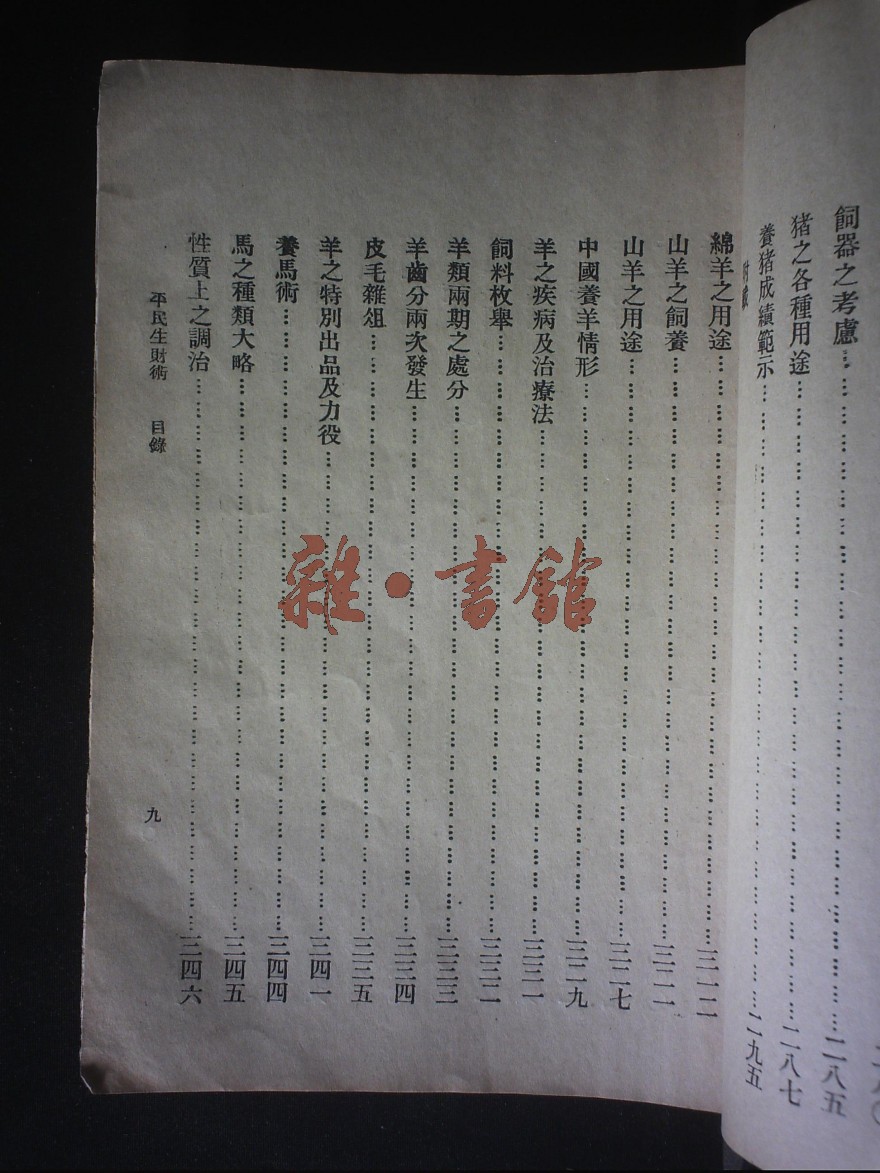 飼器之考慮……二八五
猪之各種用途……二八七
養猪成績範示……二九五
綿羊之用途……三一二
山羊之飼養……三二一
山羊之用途……三二七
中國養羊情形……三二九
羊之疾病及治療法……三三一
飼料枚舉……三三二
羊類兩期之處分……三三三
羊齒分兩次發生……三三四
皮毛雜俎……三三五
羊之特別出品及力役……三四一
養馬術……三四四
馬之種類大略……三四五
性質上之調治……三四六
平民生財術 目錄 九
雜·書館